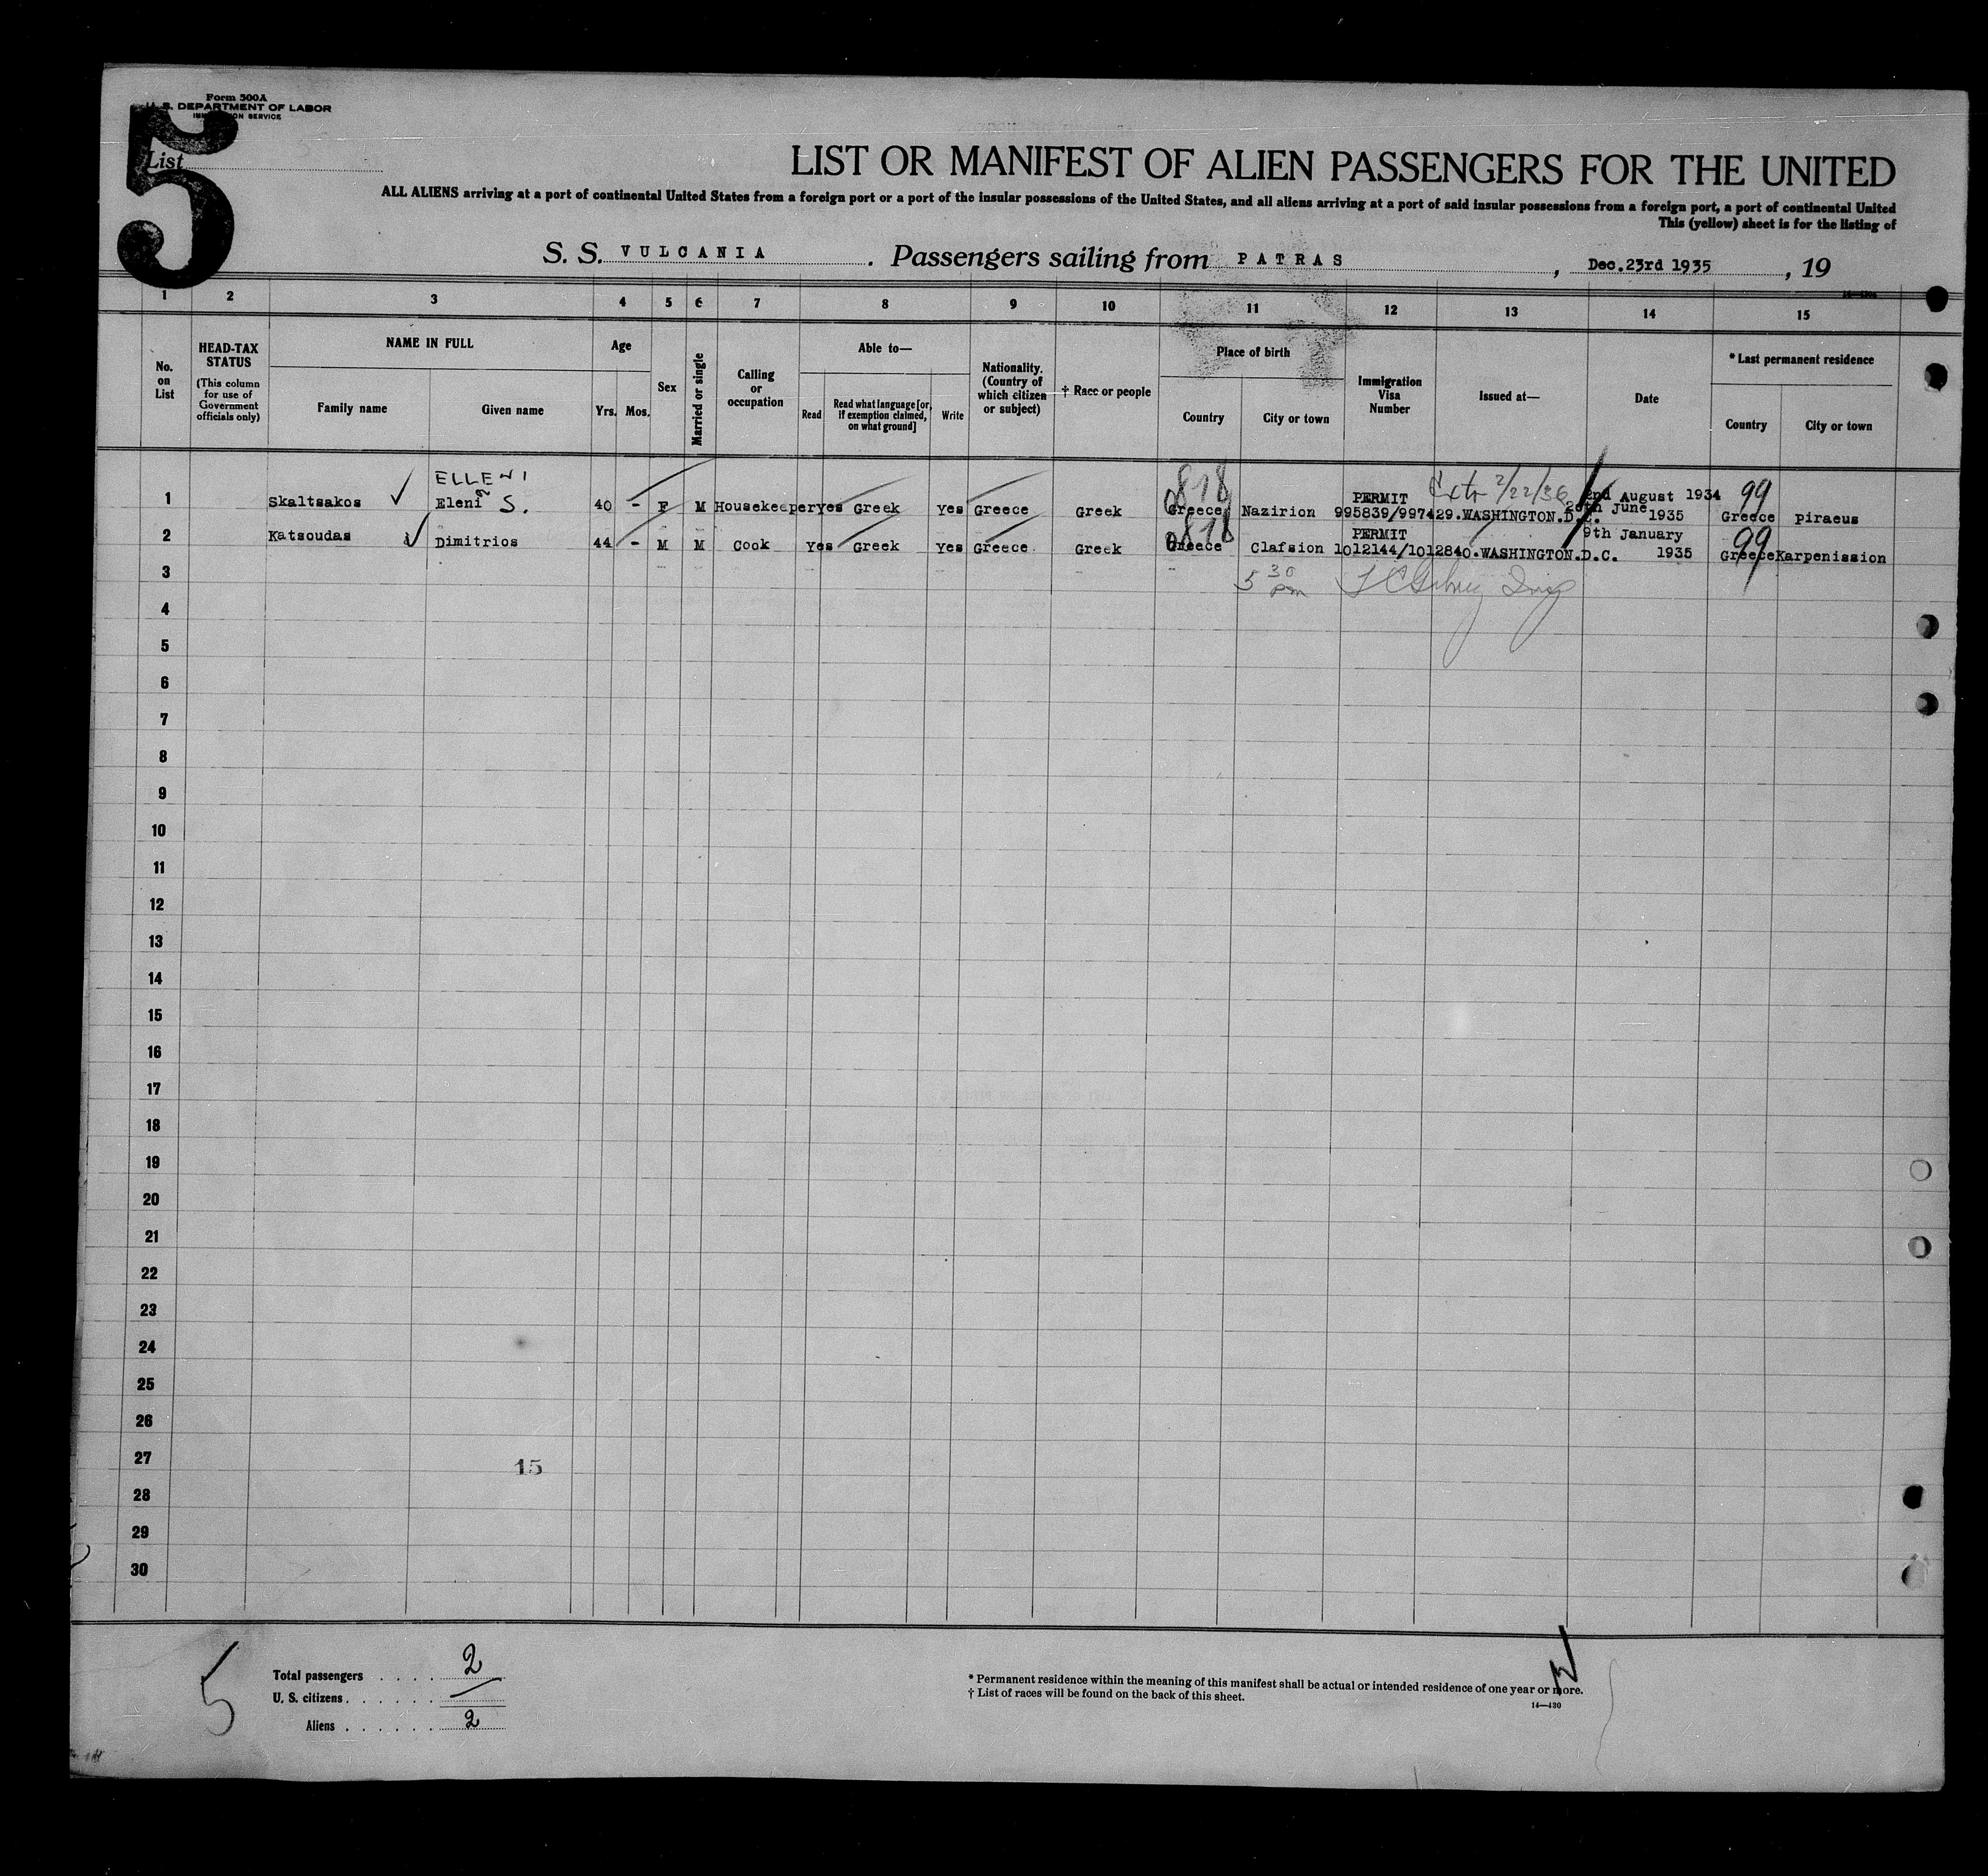 Form 500A
U. S. DEPARTMENT OF LABOR
IMMIGRATION SERVICE
5
List
LIST OR MANIFEST OF ALIEN PASSENGERS FOR THE UNITED
ALL ALIENS arriving at a port of continental United States from a foreign port or a port of the insular possessions of the United States, and all aliens arriving at a port of said insular possessions from a foreign port, a port of continental United
This (yellow) sheet is for the listing of
S. S. VULCANIA . Passengers sailing from PATRAS , Dec.23rd 1935 , 19
1 2 3 4 5 6 7 8 9 10 11 12 13 14 15
No. on List
HEAD-TAX STATUS
(This column for use of Government officials only)
NAME IN FULL
Family name
Given name
Age
Yrs. Mos.
Sex
Married or single
Calling or occupation
Able to—
Read
Read what language [or, if exemption claimed, on what ground]
Write
Nationality. (Country of which citizen or subject)
† Race or people
Place of birth
Country
City or town
Immigration Visa Number
Issued at—
Date
* Last permanent residence
Country
City or town
ELLENI
1 Skaltsakos Eleni S. 40 - F M Housekeeper yes Greek yes Greece Greek Greece Nazirion PERMIT 995839/997429.WASHINGTON.D.C. 2nd August 1934 June 1935 Greece Piraeus
818 2/22/36 99
2 Katsoudas Dimitrios 44 - M M Cook Yes Greek Yes Greece Greek Greece Clafsion PERMIT 1012144/1012840.WASHINGTON.D.C. 9th January 1935 Greece Karpenission
818 99
3
5 30 pm
4
5
6
7
8
9
10
11
12
13
14
15
16
17
18
19
20
21
22
23
24
25
26
27
15
28
29
30
5
Total passengers . . . . . 2
U. S. citizens . . . . . .
Aliens . . . . . . 2
* Permanent residence within the meaning of this manifest shall be actual or intended residence of one year or more.
† List of races will be found on the back of this sheet.
14—430